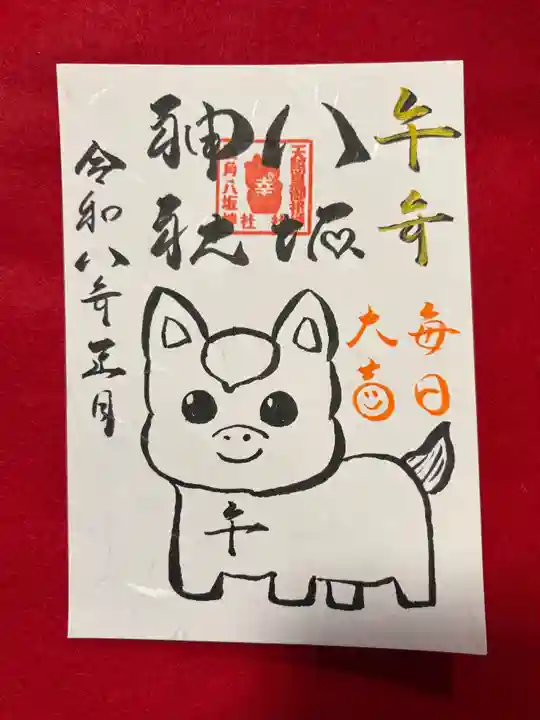 午年
毎日
大吉
八坂
神社
令和八年正月
午
幸
角八坂神社